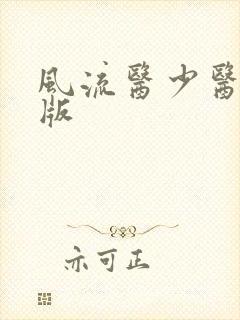 風流醫少醫
版
亦可正